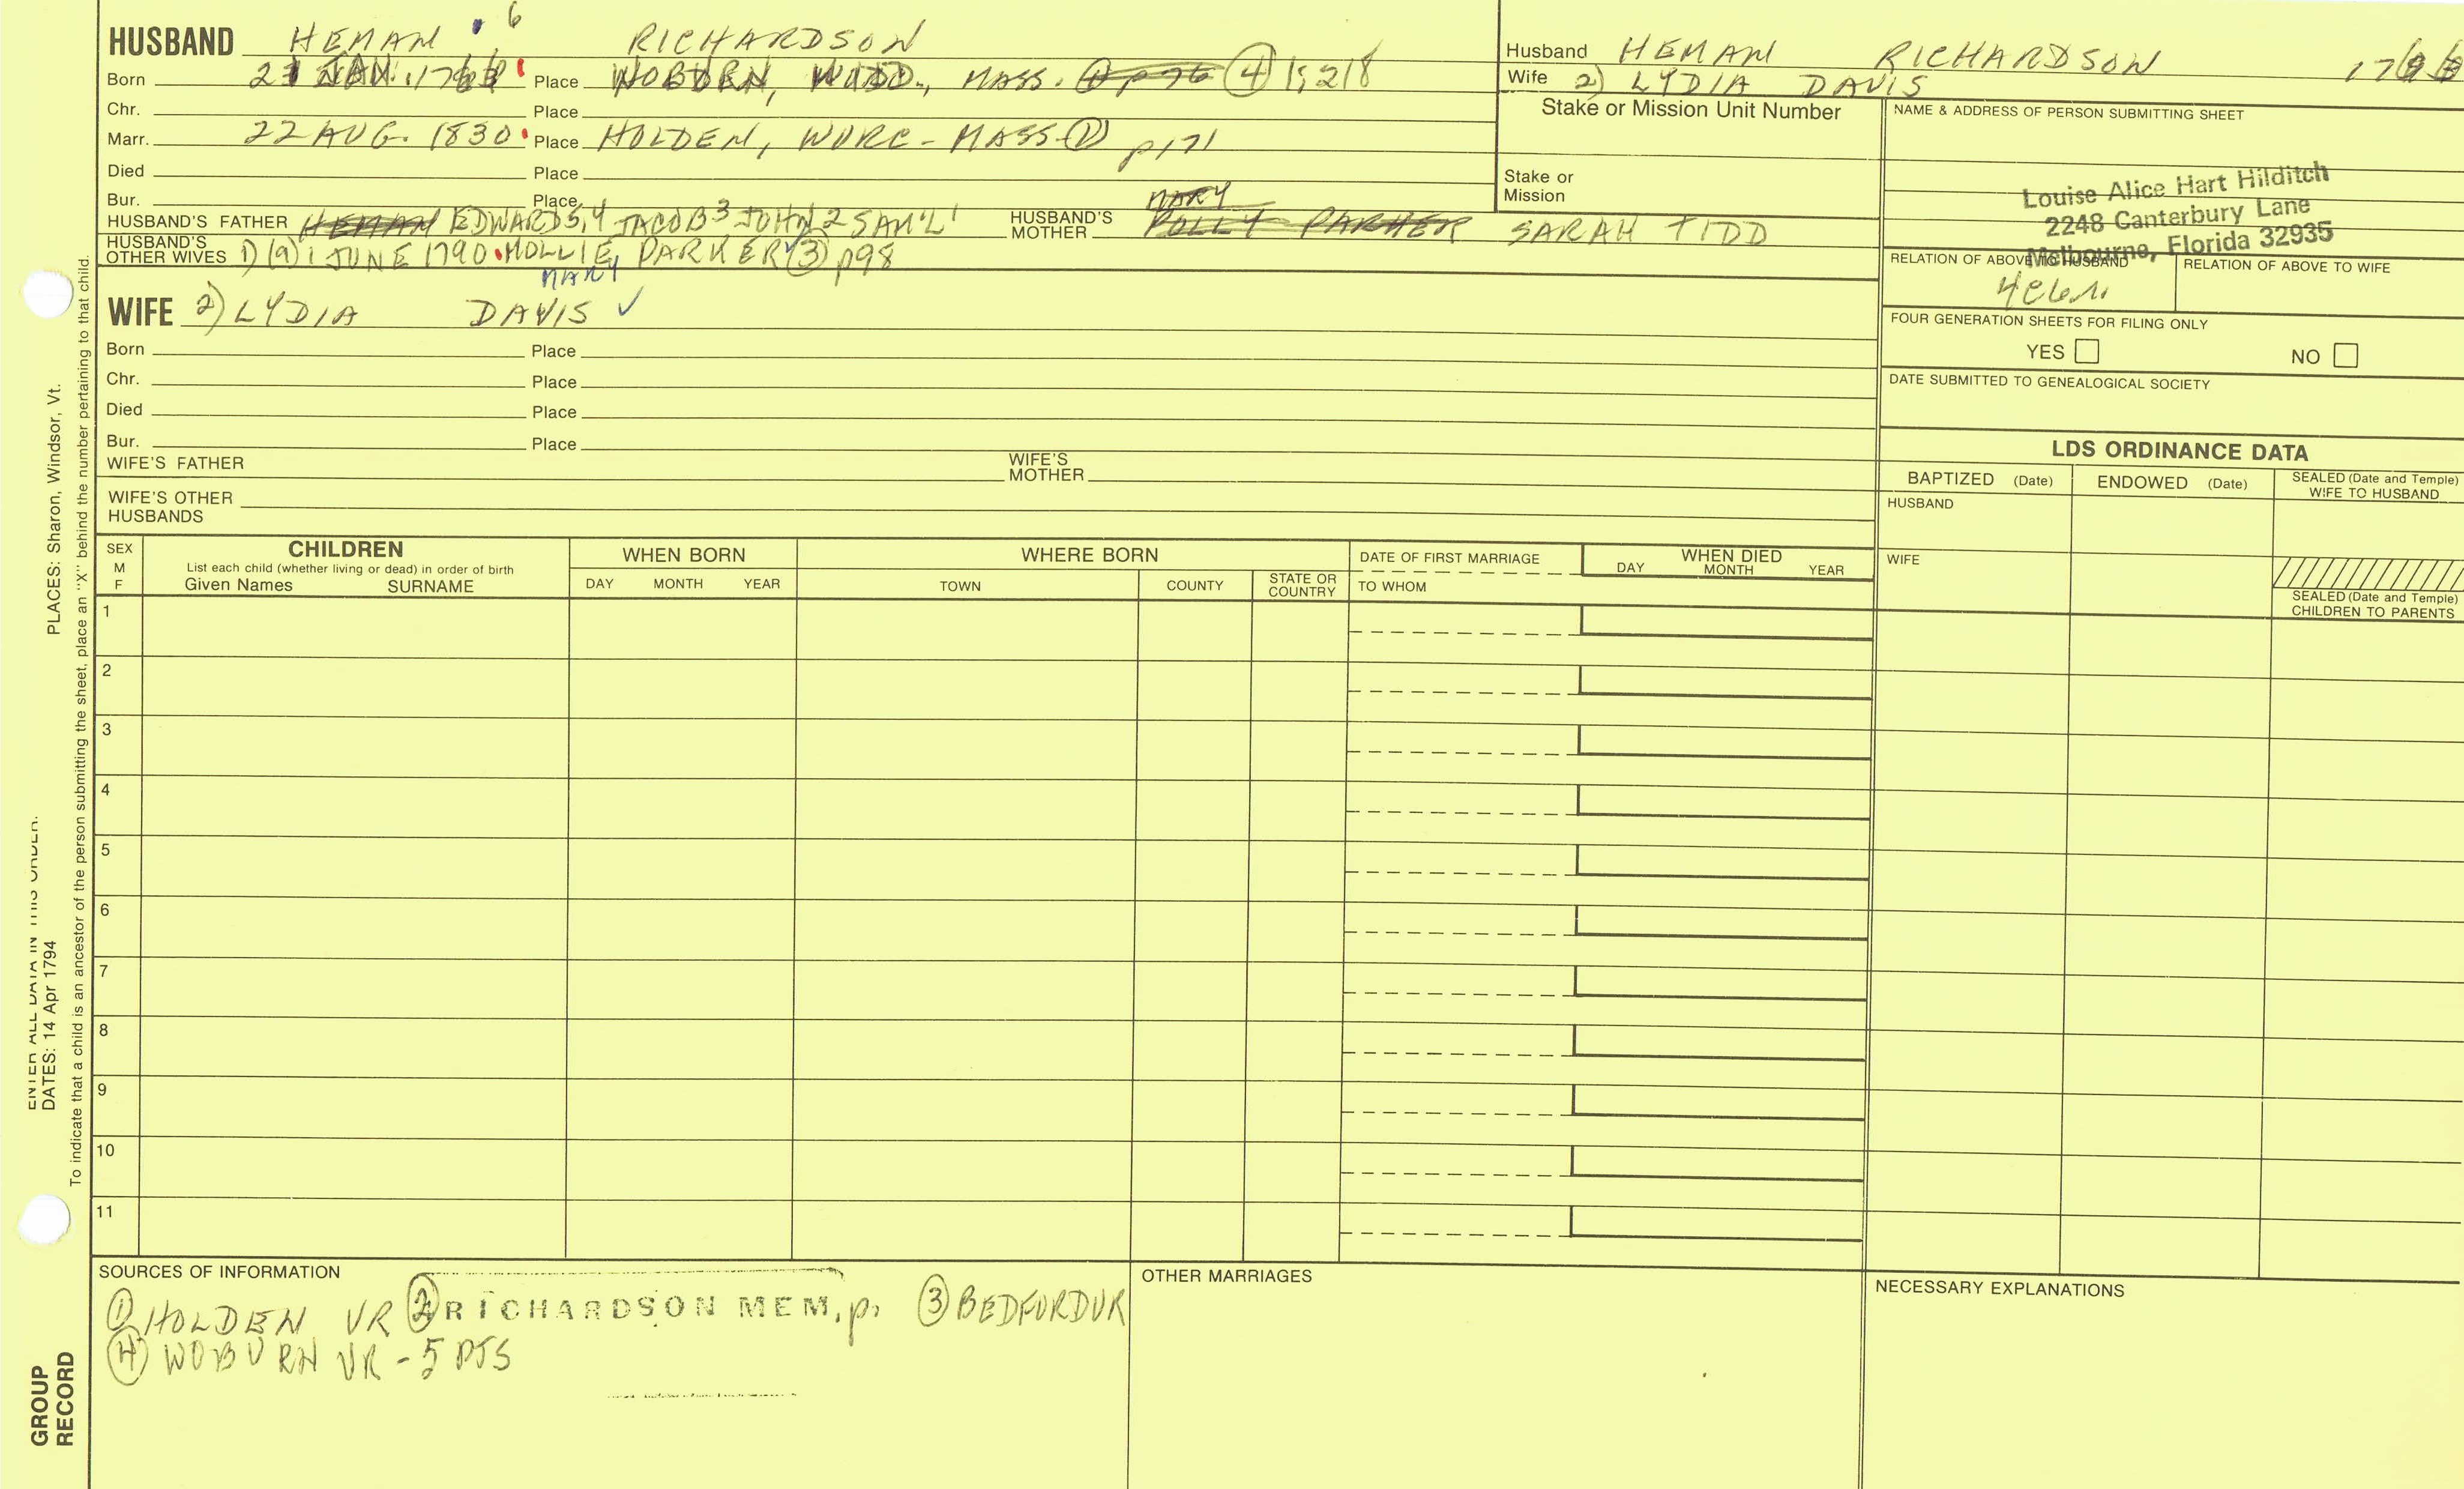 HUSBAND HEMAN 6 RICHARDSON
Born Place WOBURN, MASS. ④ 1;218
Chr. Place
Marr. 22 AUG. 1830 Place HOLDEN, WORC - MASS ① p171
Died Place
Bur. Place MARY
HUSBAND'S FATHER HEMAN EDWARD 5,4 JACOB3 JOHN2 SAM'L1 HUSBAND'S MOTHER POLLY PARKER SARAH TIDD
HUSBAND'S OTHER WIVES 1) (a) 1 JUNE 1790 MOLLIE PARKER ③ p98
MARY
WIFE 2) LYDIA DAVIS ✓
Born Place
Chr. Place
Died Place
Bur. Place
WIFE'S FATHER WIFE'S MOTHER
WIFE'S OTHER HUSBANDS
Husband HEMAN RICHARDSON
Wife 2) LYDIA DAVIS
Stake or Mission Unit Number
Stake or Mission
NAME & ADDRESS OF PERSON SUBMITTING SHEET
Louise Alice Hart Hilditch
2248 Canterbury Lane
Melbourne, Florida 32935
RELATION OF ABOVE TO HUSBAND RELATION OF ABOVE TO WIFE
FOUR GENERATION SHEETS FOR FILING ONLY
YES NO
DATE SUBMITTED TO GENEALOGICAL SOCIETY
LDS ORDINANCE DATA
BAPTIZED (Date) ENDOWED (Date) SEALED (Date and Temple) WIFE TO HUSBAND
HUSBAND
WIFE
SEALED (Date and Temple) CHILDREN TO PARENTS
SEX M F
CHILDREN
List each child (whether living or dead) in order of birth
Given Names SURNAME
WHEN BORN
DAY MONTH YEAR
WHERE BORN
TOWN COUNTY STATE OR COUNTRY
DATE OF FIRST MARRIAGE
TO WHOM
WHEN DIED
DAY MONTH YEAR
1
2
3
4
5
6
7
8
9
10
11
SOURCES OF INFORMATION
① HOLDEN VR ② RICHARDSON MEM, p. ③ BEDFORD VR
④ WOBURN VR - 5 PTS
OTHER MARRIAGES
NECESSARY EXPLANATIONS
PLACES: Sharon, Windsor, Vt.
To indicate that a child is an ancestor of the person submitting the sheet, place an "X" behind the number pertaining to that child.
ENTER ALL DATA IN THIS ORDER.
DATES: 14 Apr 1794
GROUP RECORD